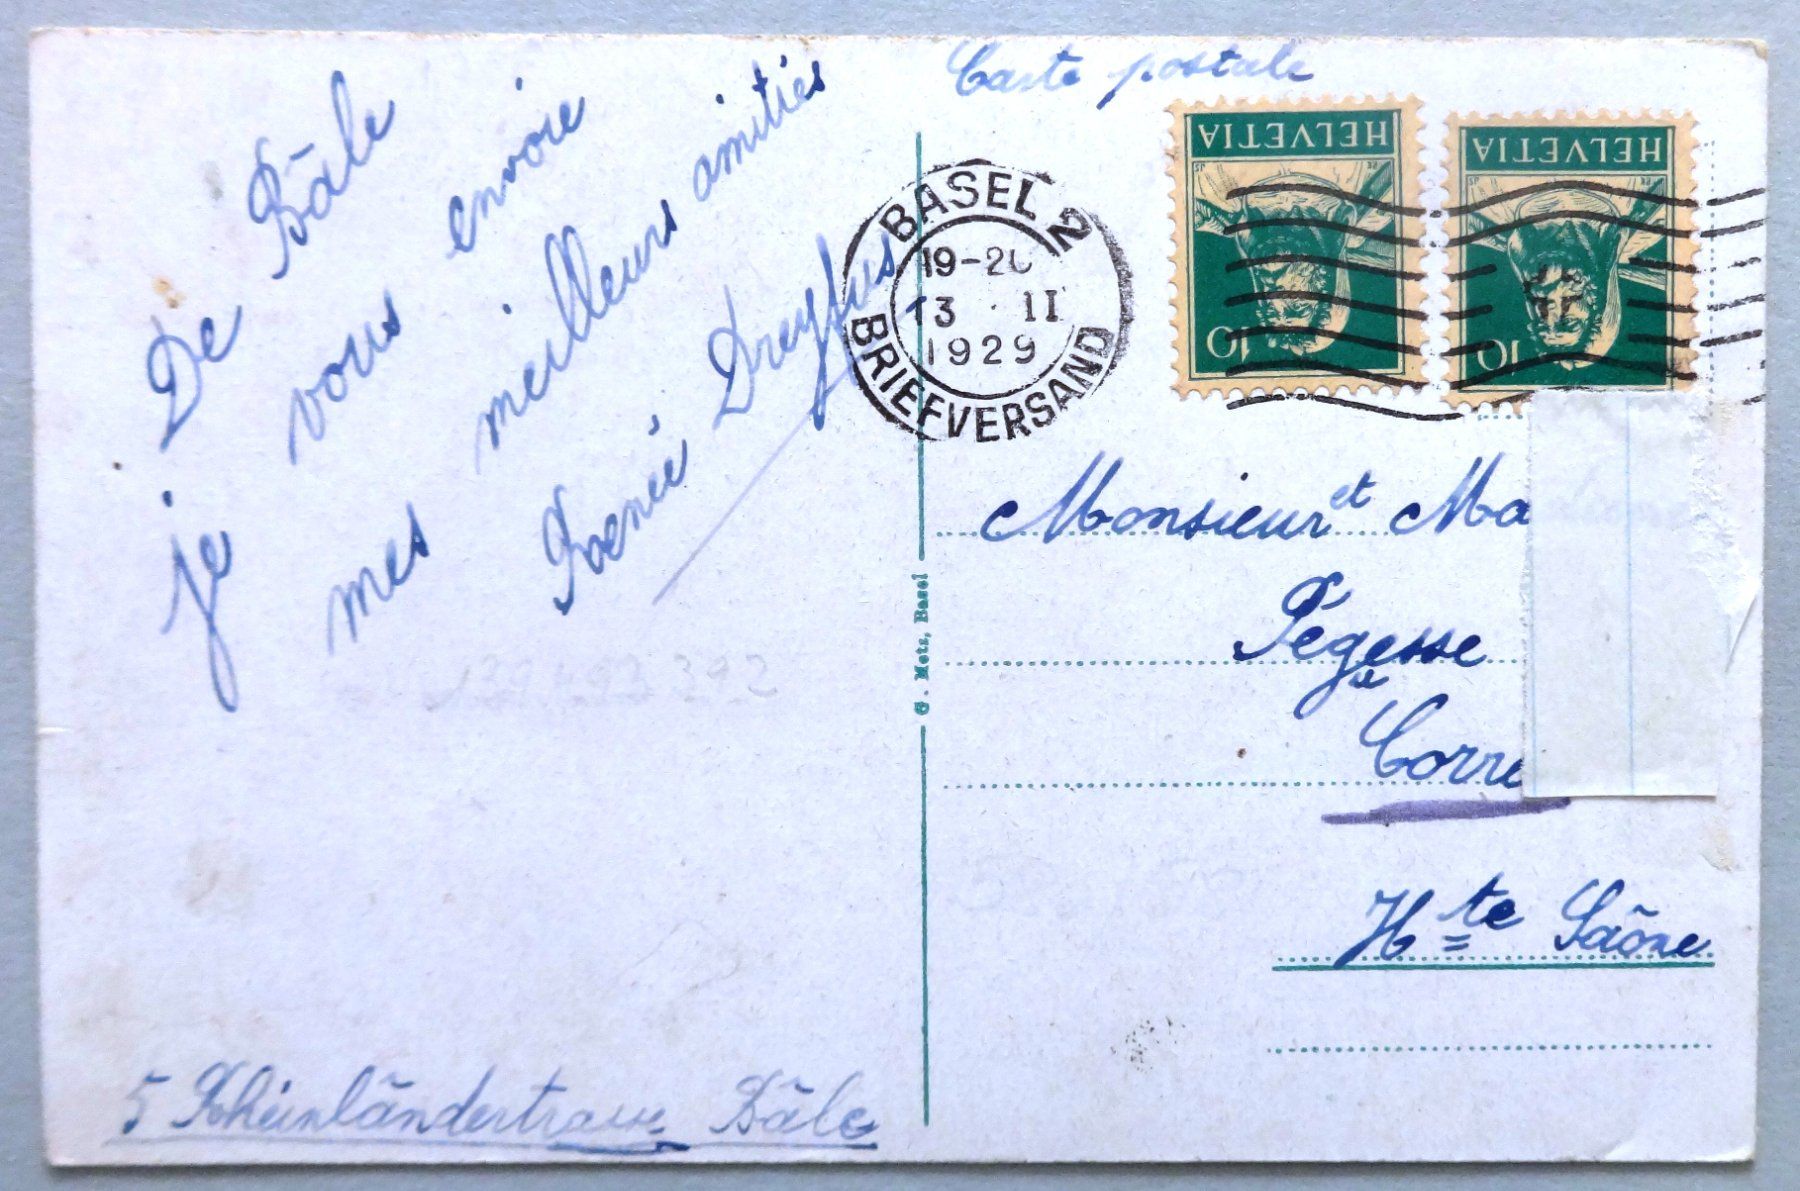 Carte postale
De Bâle
je vous envoie
mes meilleurs amitiés
Renée Dreyfus
5 Rheinländertrasse Bâle
HELVETIA
10
HELVETIA
10
BASEL 2
19-20
13 · II
1929
BRIEFVERSAND
G. Metz, Basel
Monsieur et Ma
Pégesse
Corre
Hte Saône